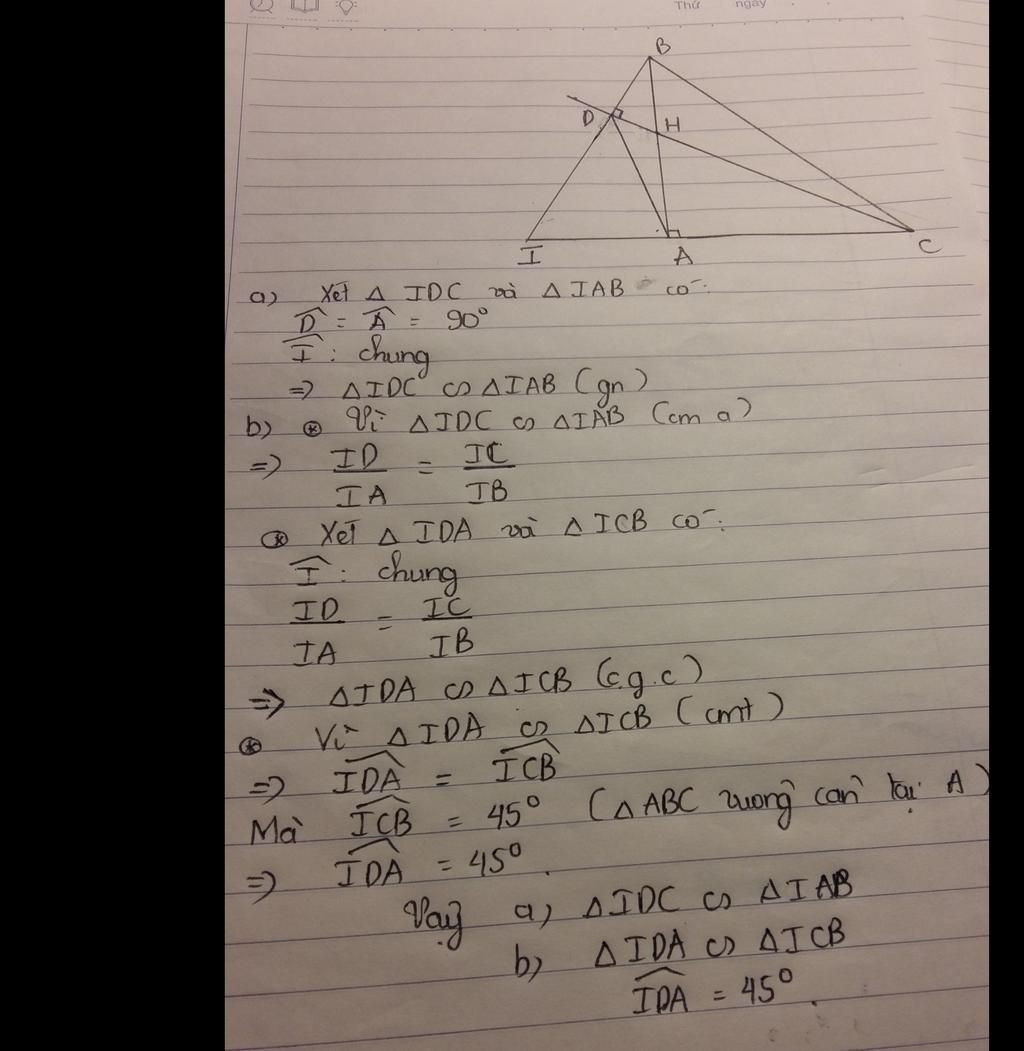 Thứ ngày
B
D
H
I
A
C
a) Xét Δ IDC và Δ IAB có:
D̂ = Â = 90°
Î : chung
=> ΔIDC ∽ ΔIAB (gn)
b) ⊛ Vì ΔIDC ∽ ΔIAB (cm a)
=> ID/IA = IC/IB
⊛ Xét Δ IDA và Δ ICB có:
Î : chung
ID/IA = IC/IB
=> ΔIDA ∽ ΔICB (c.g.c)
⊛ Vì ΔIDA ∽ ΔICB (cmt)
=> \widehat{IDA} = \widehat{ICB}
Mà \widehat{ICB} = 45° (ΔABC vuông cân tại A)
=> \widehat{IDA} = 45°.
Vậy a) ΔIDC ∽ ΔIAB
b) ΔIDA ∽ ΔICB
\widehat{IDA} = 45°.